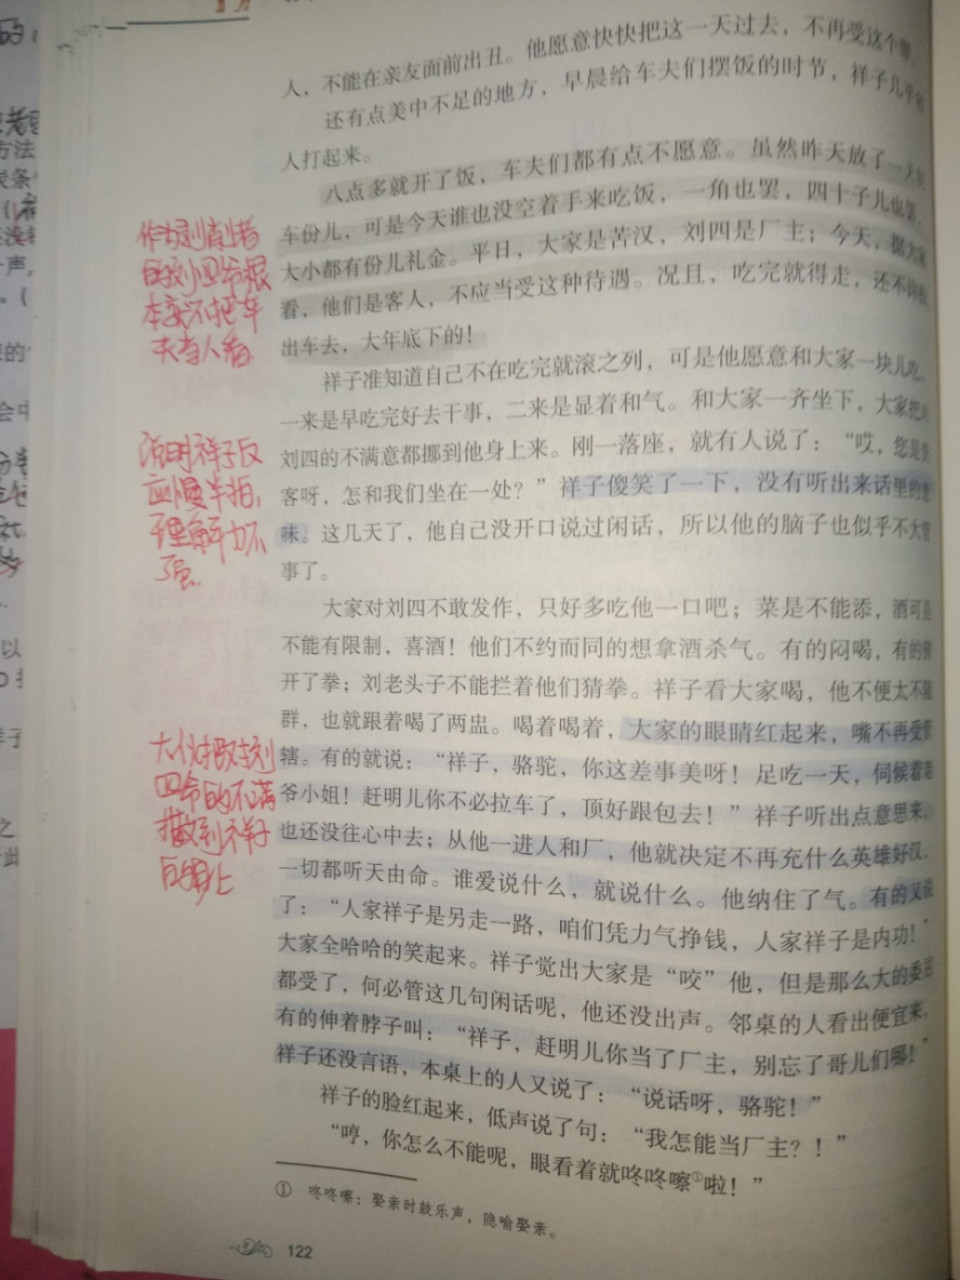 人，不能在亲友面前出丑。他愿意快快把这一天过去，不再受这个
还有点美中不足的地方，早晨给车夫们摆饭的时节，祥子几乎和
人打起来。
八点多就开了饭，车夫们都有点不愿意。虽然昨天放了一天的
车份儿，可是今天谁也没空着手来吃饭，一角也罢，四十子儿也罢，
大小都有份儿礼金。平日，大家是苦汉，刘四是厂主；今天，据大家
看，他们是客人，不应当受这种待遇。况且，吃完就得走，还不许
出车去，大年底下的！
祥子准知道自己不在吃完就滚之列，可是他愿意和大家一块儿吃。
一来是早吃完好去干事，二来是显着和气。和大家一齐坐下，大家把
刘四的不满意都挪到他身上来。刚一落座，就有人说了：“哎，您是贵
客呀，怎和我们坐在一处？”祥子傻笑了一下，没有听出来话里的意
味。这几天了，他自己没开口说过闲话，所以他的脑子也似乎不大管
事了。
大家对刘四不敢发作，只好多吃他一口吧；菜是不能添，酒可是
不能有限制，喜酒！他们不约而同的想拿酒杀气。有的闷喝，有的猜
开了拳；刘老头子不能拦着他们猜拳。祥子看大家喝，他不便太不随
群，也就跟着喝了两盅。喝着喝着，大家的眼睛红起来，嘴不再受管
辖。有的就说：“祥子，骆驼，你这差事美呀！足吃一天，伺候着老
爷小姐！赶明儿你不必拉车了，顶好跟包去！”祥子听出点意思来，
也还没往心中去；从他一进人和厂，他就决定不再充什么英雄好汉，
一切都听天由命。谁爱说什么，就说什么。他纳住了气。有的又说
了：“人家祥子是另走一路，咱们凭力气挣钱，人家祥子是内功！”
大家全哈哈的笑起来。祥子觉出大家是“咬”他，但是那么大的委屈
都受了，何必管这几句闲话呢，他还没出声。邻桌的人看出便宜来，
有的伸着脖子叫：“祥子，赶明儿你当了厂主，别忘了哥儿们哪！”
祥子还没言语，本桌上的人又说了：“说话呀，骆驼！”
祥子的脸红起来，低声说了句：“我怎能当厂主？！”
“哼，你怎么不能呢，眼看着就咚咚嚓①啦！”
① 咚咚嚓：娶亲时鼓乐声，隐喻娶亲。
122
根
本就不把车
夫当人看.
说明祥子反
应慢半拍,
理解力不
强.
大伙把对刘
四爷的不满
撒到祥子
身上